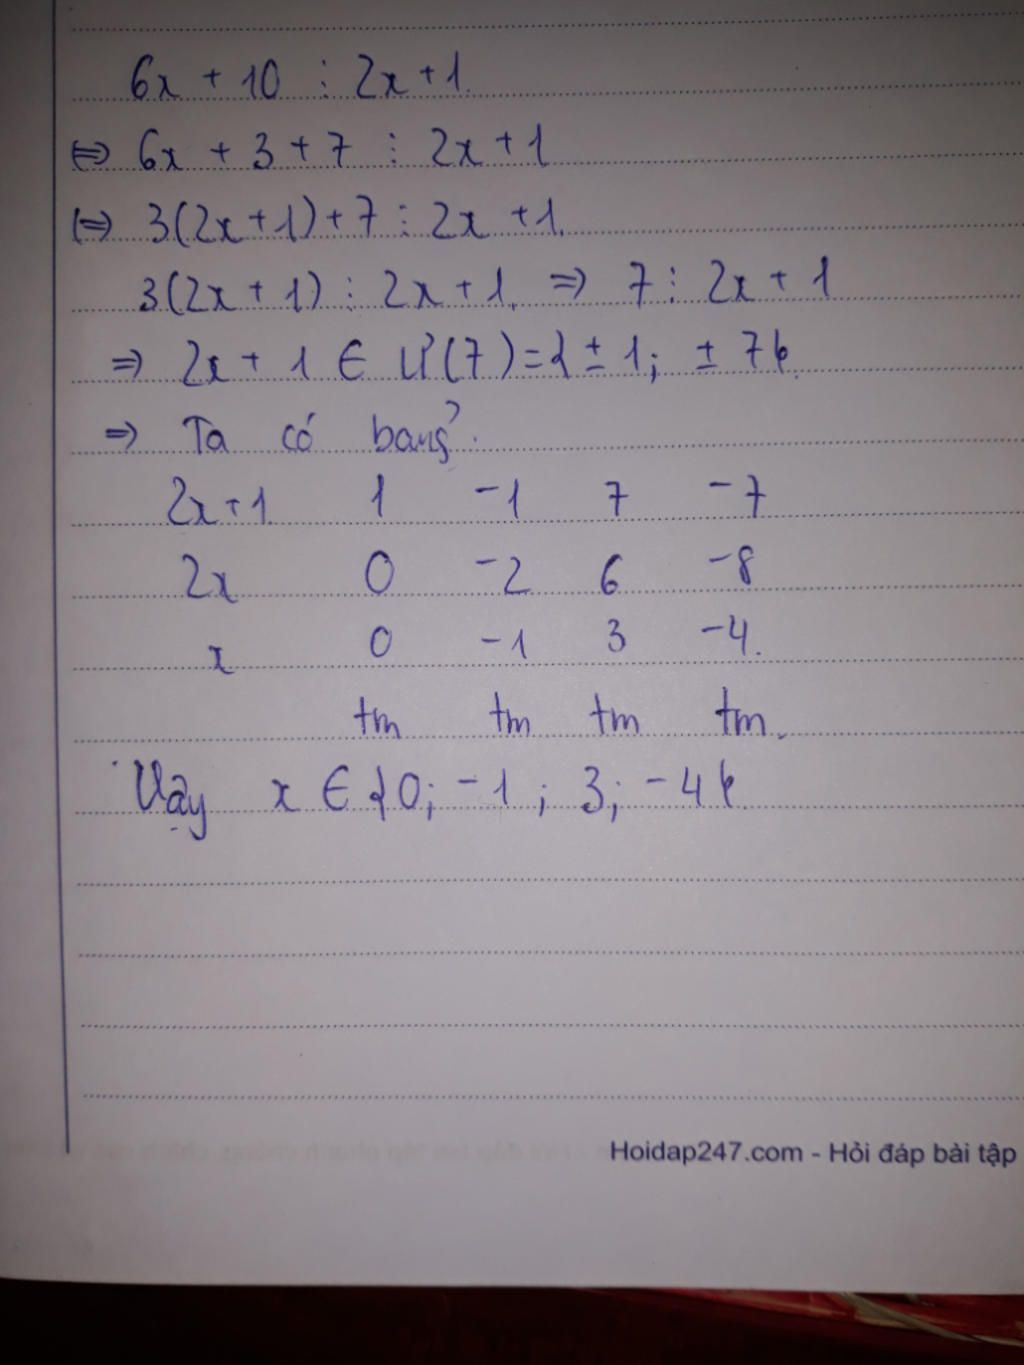 6x + 10 ⋮ 2x + 1.
⇔ 6x + 3 + 7 ⋮ 2x + 1
⇔ 3(2x + 1) + 7 ⋮ 2x + 1.
3(2x + 1) ⋮ 2x + 1. ⇒ 7 ⋮ 2x + 1
⇒ 2x + 1 ∈ Ư(7) = {± 1; ± 7}.
⇒ Ta có bảng:
2x + 1 1 -1 7 -7
2x 0 -2 6 -8
x 0 -1 3 -4.
tm tm tm tm.
Vậy x ∈ {0; -1; 3; -4}.
Hoidap247.com - Hỏi đáp bài tập